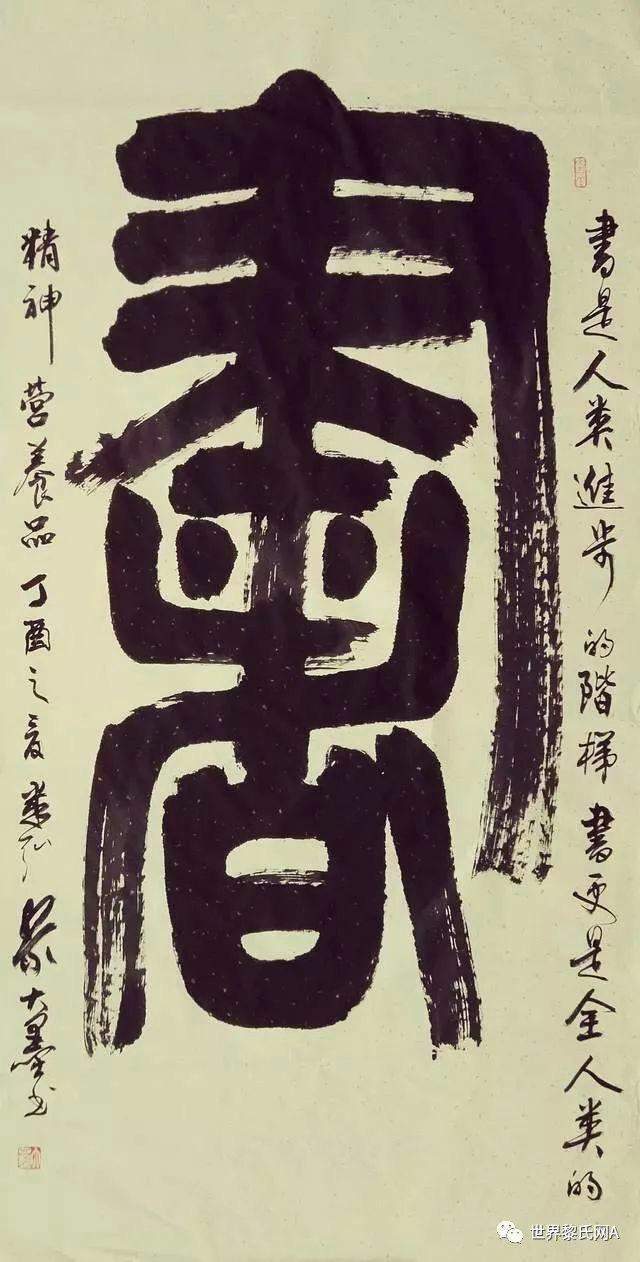 書
書是人类進步的階梯書更是全人类的
精神营養品丁酉之夏 大墨书
世界黎氏网A